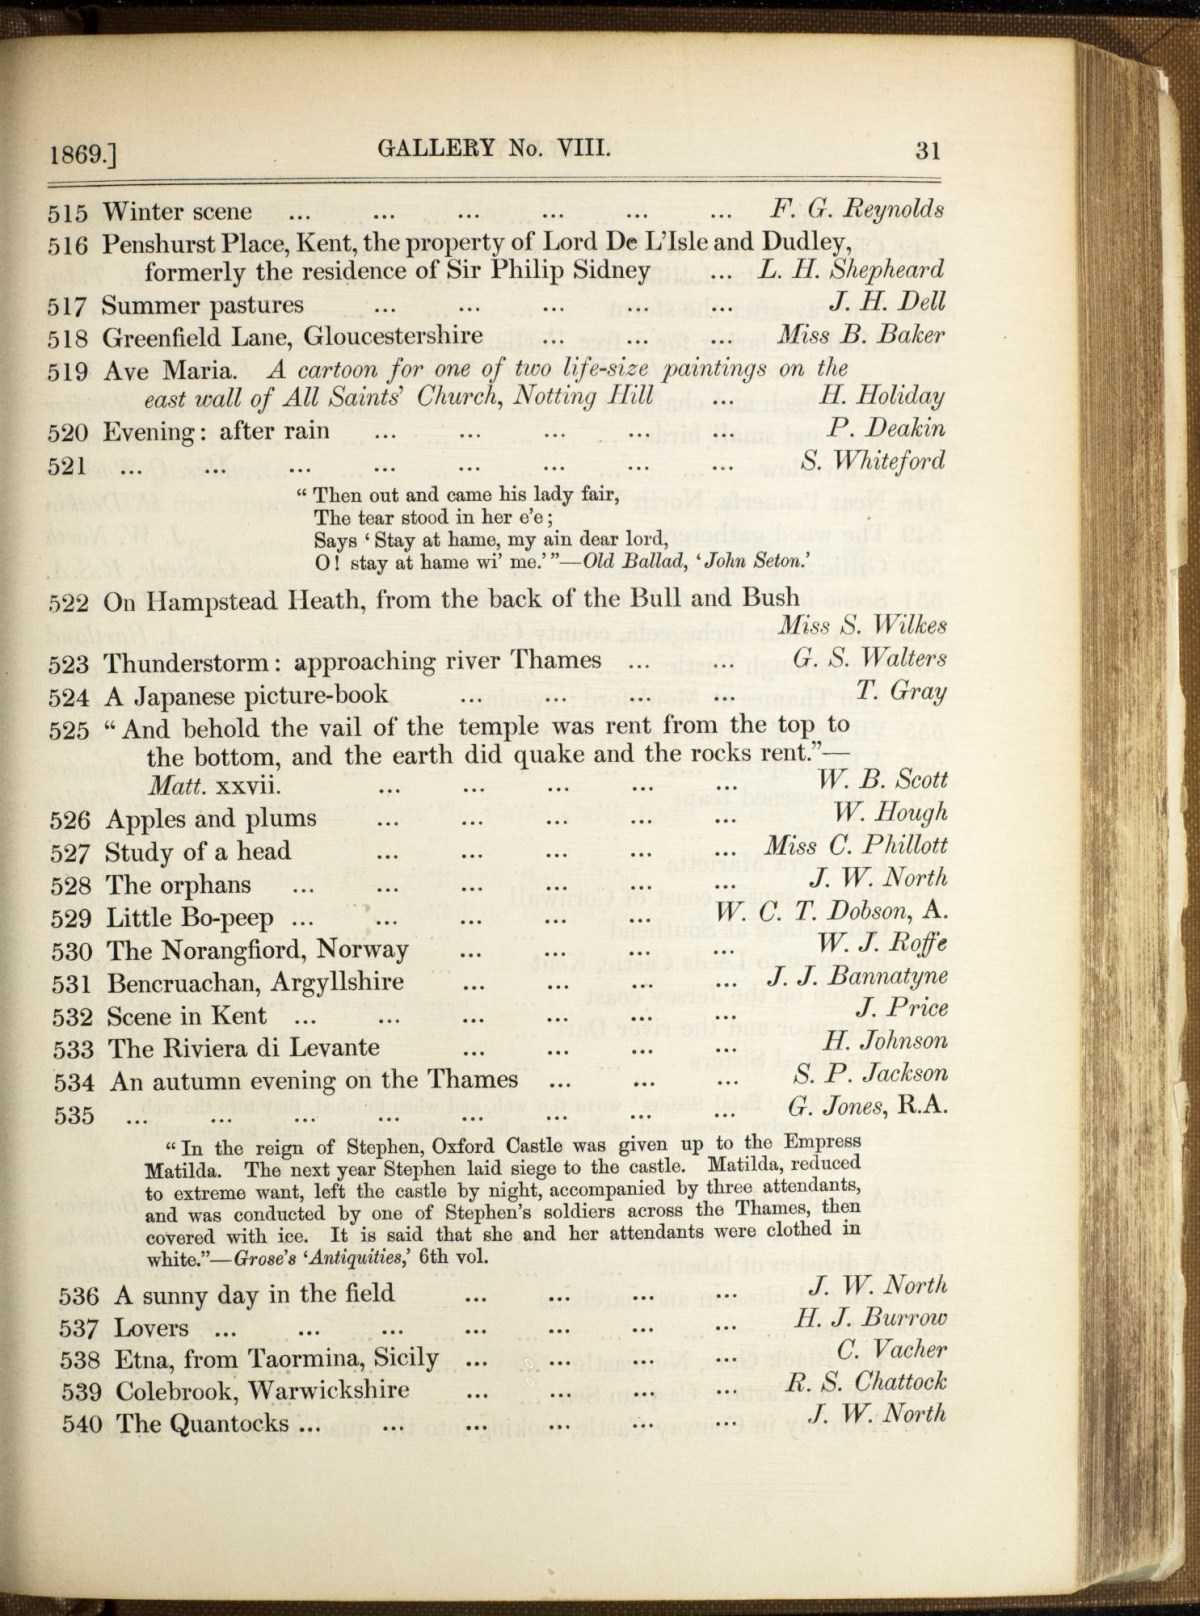 1869.] GALLERY No. VIII. 31
515 Winter scene ... ... ... ... ... ... F. G. Reynolds
516 Penshurst Place, Kent, the property of Lord De L'Isle and Dudley,
formerly the residence of Sir Philip Sidney ... L. H. Shepheard
517 Summer pastures ... ... ... ... ... J. H. Dell
518 Greenfield Lane, Gloucestershire ... ... ... Miss B. Baker
519 Ave Maria. A cartoon for one of two life-size paintings on the
east wall of All Saints' Church, Notting Hill ... H. Holiday
520 Evening: after rain ... ... ... ... ... P. Deakin
521 ... ... ... ... ... ... ... ... S. Whiteford
“ Then out and came his lady fair,
The tear stood in her e'e;
Says ‘ Stay at hame, my ain dear lord,
O! stay at hame wi' me.’ ”—Old Ballad, ‘ John Seton.’
522 On Hampstead Heath, from the back of the Bull and Bush
Miss S. Wilkes
523 Thunderstorm: approaching river Thames ... ... G. S. Walters
524 A Japanese picture-book ... ... ... ... T. Gray
525 “ And behold the vail of the temple was rent from the top to
the bottom, and the earth did quake and the rocks rent.”—
Matt. xxvii. ... ... ... ... ... W. B. Scott
526 Apples and plums ... ... ... ... ... W. Hough
527 Study of a head ... ... ... ... ... Miss C. Phillott
528 The orphans ... ... ... ... ... ... J. W. North
529 Little Bo-peep ... ... ... ... ... W. C. T. Dobson, A.
530 The Norangfiord, Norway ... ... ... ... W. J. Roffe
531 Bencruachan, Argyllshire ... ... ... ... J. J. Bannatyne
532 Scene in Kent ... ... ... ... ... ... J. Price
533 The Riviera di Levante ... ... ... ... H. Johnson
534 An autumn evening on the Thames ... ... ... S. P. Jackson
535 ... ... ... ... ... ... ... ... G. Jones, R.A.
“ In the reign of Stephen, Oxford Castle was given up to the Empress
Matilda. The next year Stephen laid siege to the castle. Matilda, reduced
to extreme want, left the castle by night, accompanied by three attendants,
and was conducted by one of Stephen's soldiers across the Thames, then
covered with ice. It is said that she and her attendants were clothed in
white.”—Grose's ‘Antiquities,’ 6th vol.
536 A sunny day in the field ... ... ... ... J. W. North
537 Lovers ... ... ... ... ... ... ... H. J. Burrow
538 Etna, from Taormina, Sicily ... ... ... ... C. Vacher
539 Colebrook, Warwickshire ... ... ... ... R. S. Chattock
540 The Quantocks ... ... ... ... ... ... J. W. North